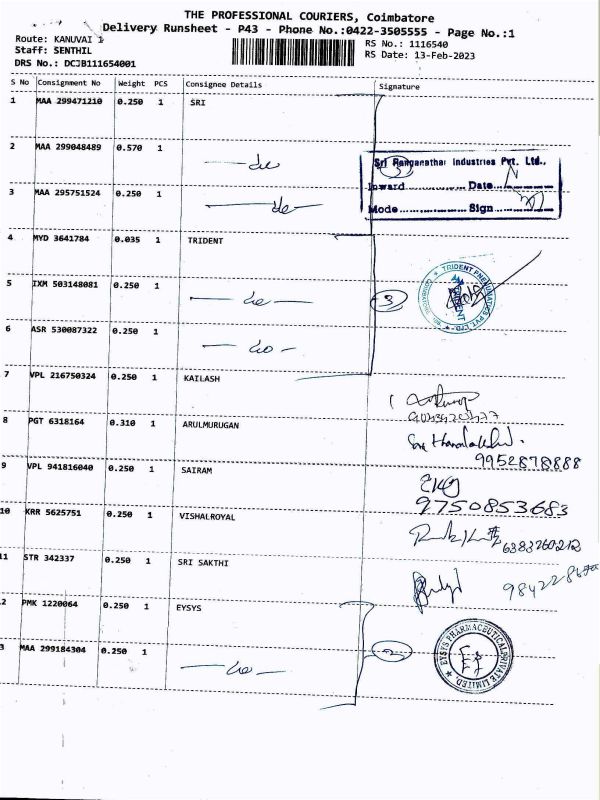 THE PROFESSIONAL COURIERS, Coimbatore
Delivery Runsheet - P43 - Phone No.:0422-3505555 - Page No.:1
Route: KANUVAI 1
Staff: SENTHIL
DRS No.: DCJB111654001
RS No.: 1116540
RS Date: 13-Feb-2023
S No Consignment No Weight PCS Consignee Details Signature
1 MAA 299471210 0.250 1 SRI
2 MAA 299048489 0.570 1
Sri Ranganathar Industries Pvt. Ltd.,
Inward Date
3 MAA 295751524 0.250 1
Mode Sign
4 MYD 3641784 0.035 1 TRIDENT
5 IXM 503148081 0.250 1 3
TRIDENT PNEUMATICS PVT LTD
6 ASR 530087322 0.250 1
7 VPL 216750324 0.250 1 KAILASH
8 PGT 6318164 0.310 1 ARULMURUGAN
9952878888
9 VPL 941816040 0.250 1 SAIRAM
9750853683
10 KRR 5625751 0.250 1 VISHALROYAL
6383260212
11 STR 342337 0.250 1 SRI SAKTHI
2 PMK 1220064 0.250 1 EYSYS
3 MAA 299184304 0.250 1 2
EYSYS PHARMACEUTICAL PRIVATE LIMITED.